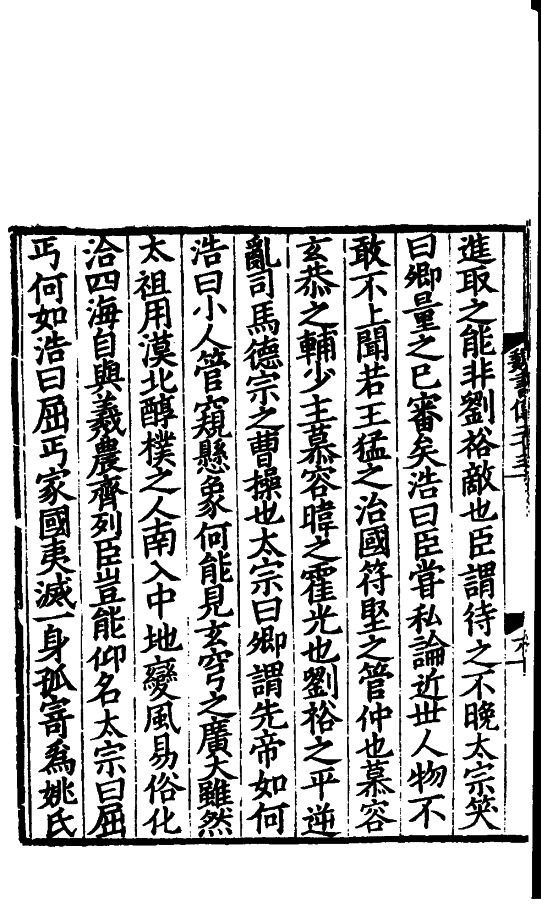 進取之能非劉裕敵也臣謂待之不晚太宗笑
曰卿量之已審矣浩曰臣嘗私論近世人物不
敢不上聞若王猛之治國苻堅之管仲也慕容
玄恭之輔少主慕容暐之霍光也劉裕之平逆
亂司馬德宗之曹操也太宗曰卿謂先帝如何
浩曰小人管窺懸象何能見玄穹之廣大雖然
太祖用漠北醇樸之人南入中地變風易俗化
洽四海自與羲農齊列臣豈能仰名太宗曰屈
丐何如浩曰屈丐家國夷滅一身孤寄爲姚氏